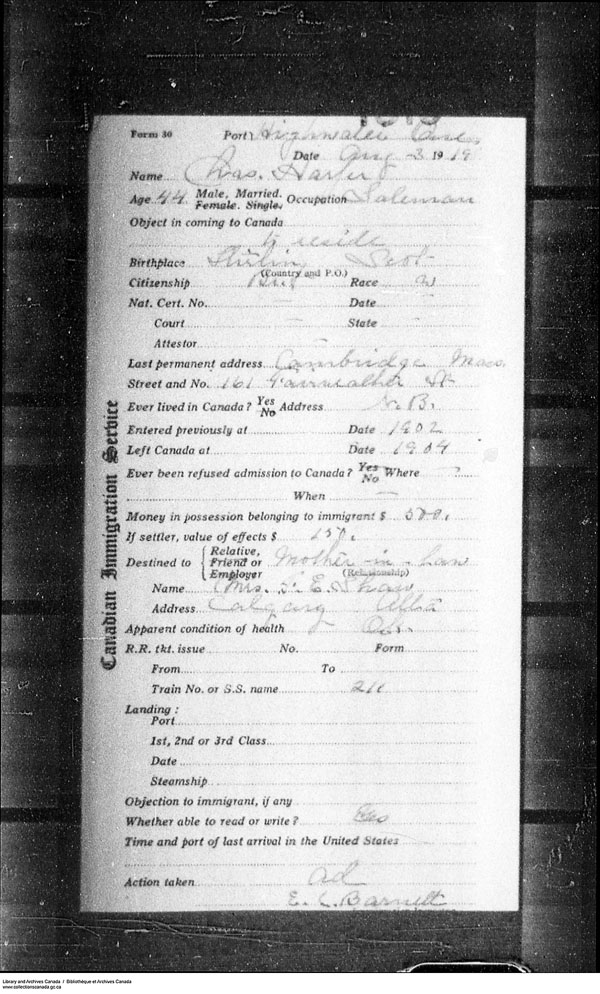 Form 30 Port Highwater Que.
Date Aug 3 1919
Name Chas.
Age 44 Male, Married. Female. Single. Occupation Salesman
Object in coming to Canada
to reside
Birthplace Scot
(Country and P.O.)
Citizenship Brit Race W
Nat. Cert. No. Date
Court State
Attestor
Last permanent address Cambridge Mass.
Street and No. 161 Fairweather St
Ever lived in Canada? Yes No Address N.B.
Entered previously at Date 1902
Left Canada at Date 1904
Ever been refused admission to Canada? Yes No Where
When
Money in possession belonging to immigrant $ 500.
If settler, value of effects $ 150.
Destined to { Relative, Friend or Employer Mother-in-Law
(Relationship)
Name Mrs. E. Shaw
Address Calgary Alta
Apparent condition of health
R.R. tkt. issue No. Form
From To
Train No. or S.S. name 211
Landing :
Port
1st, 2nd or 3rd Class
Date
Steamship
Objection to immigrant, if any
Whether able to read or write? Yes
Time and port of last arrival in the United States
Action taken ad
E. C. Barnett
Canadian Immigration Service
Library and Archives Canada / Bibliothèque et Archives Canada
www.collectionscanada.gc.ca